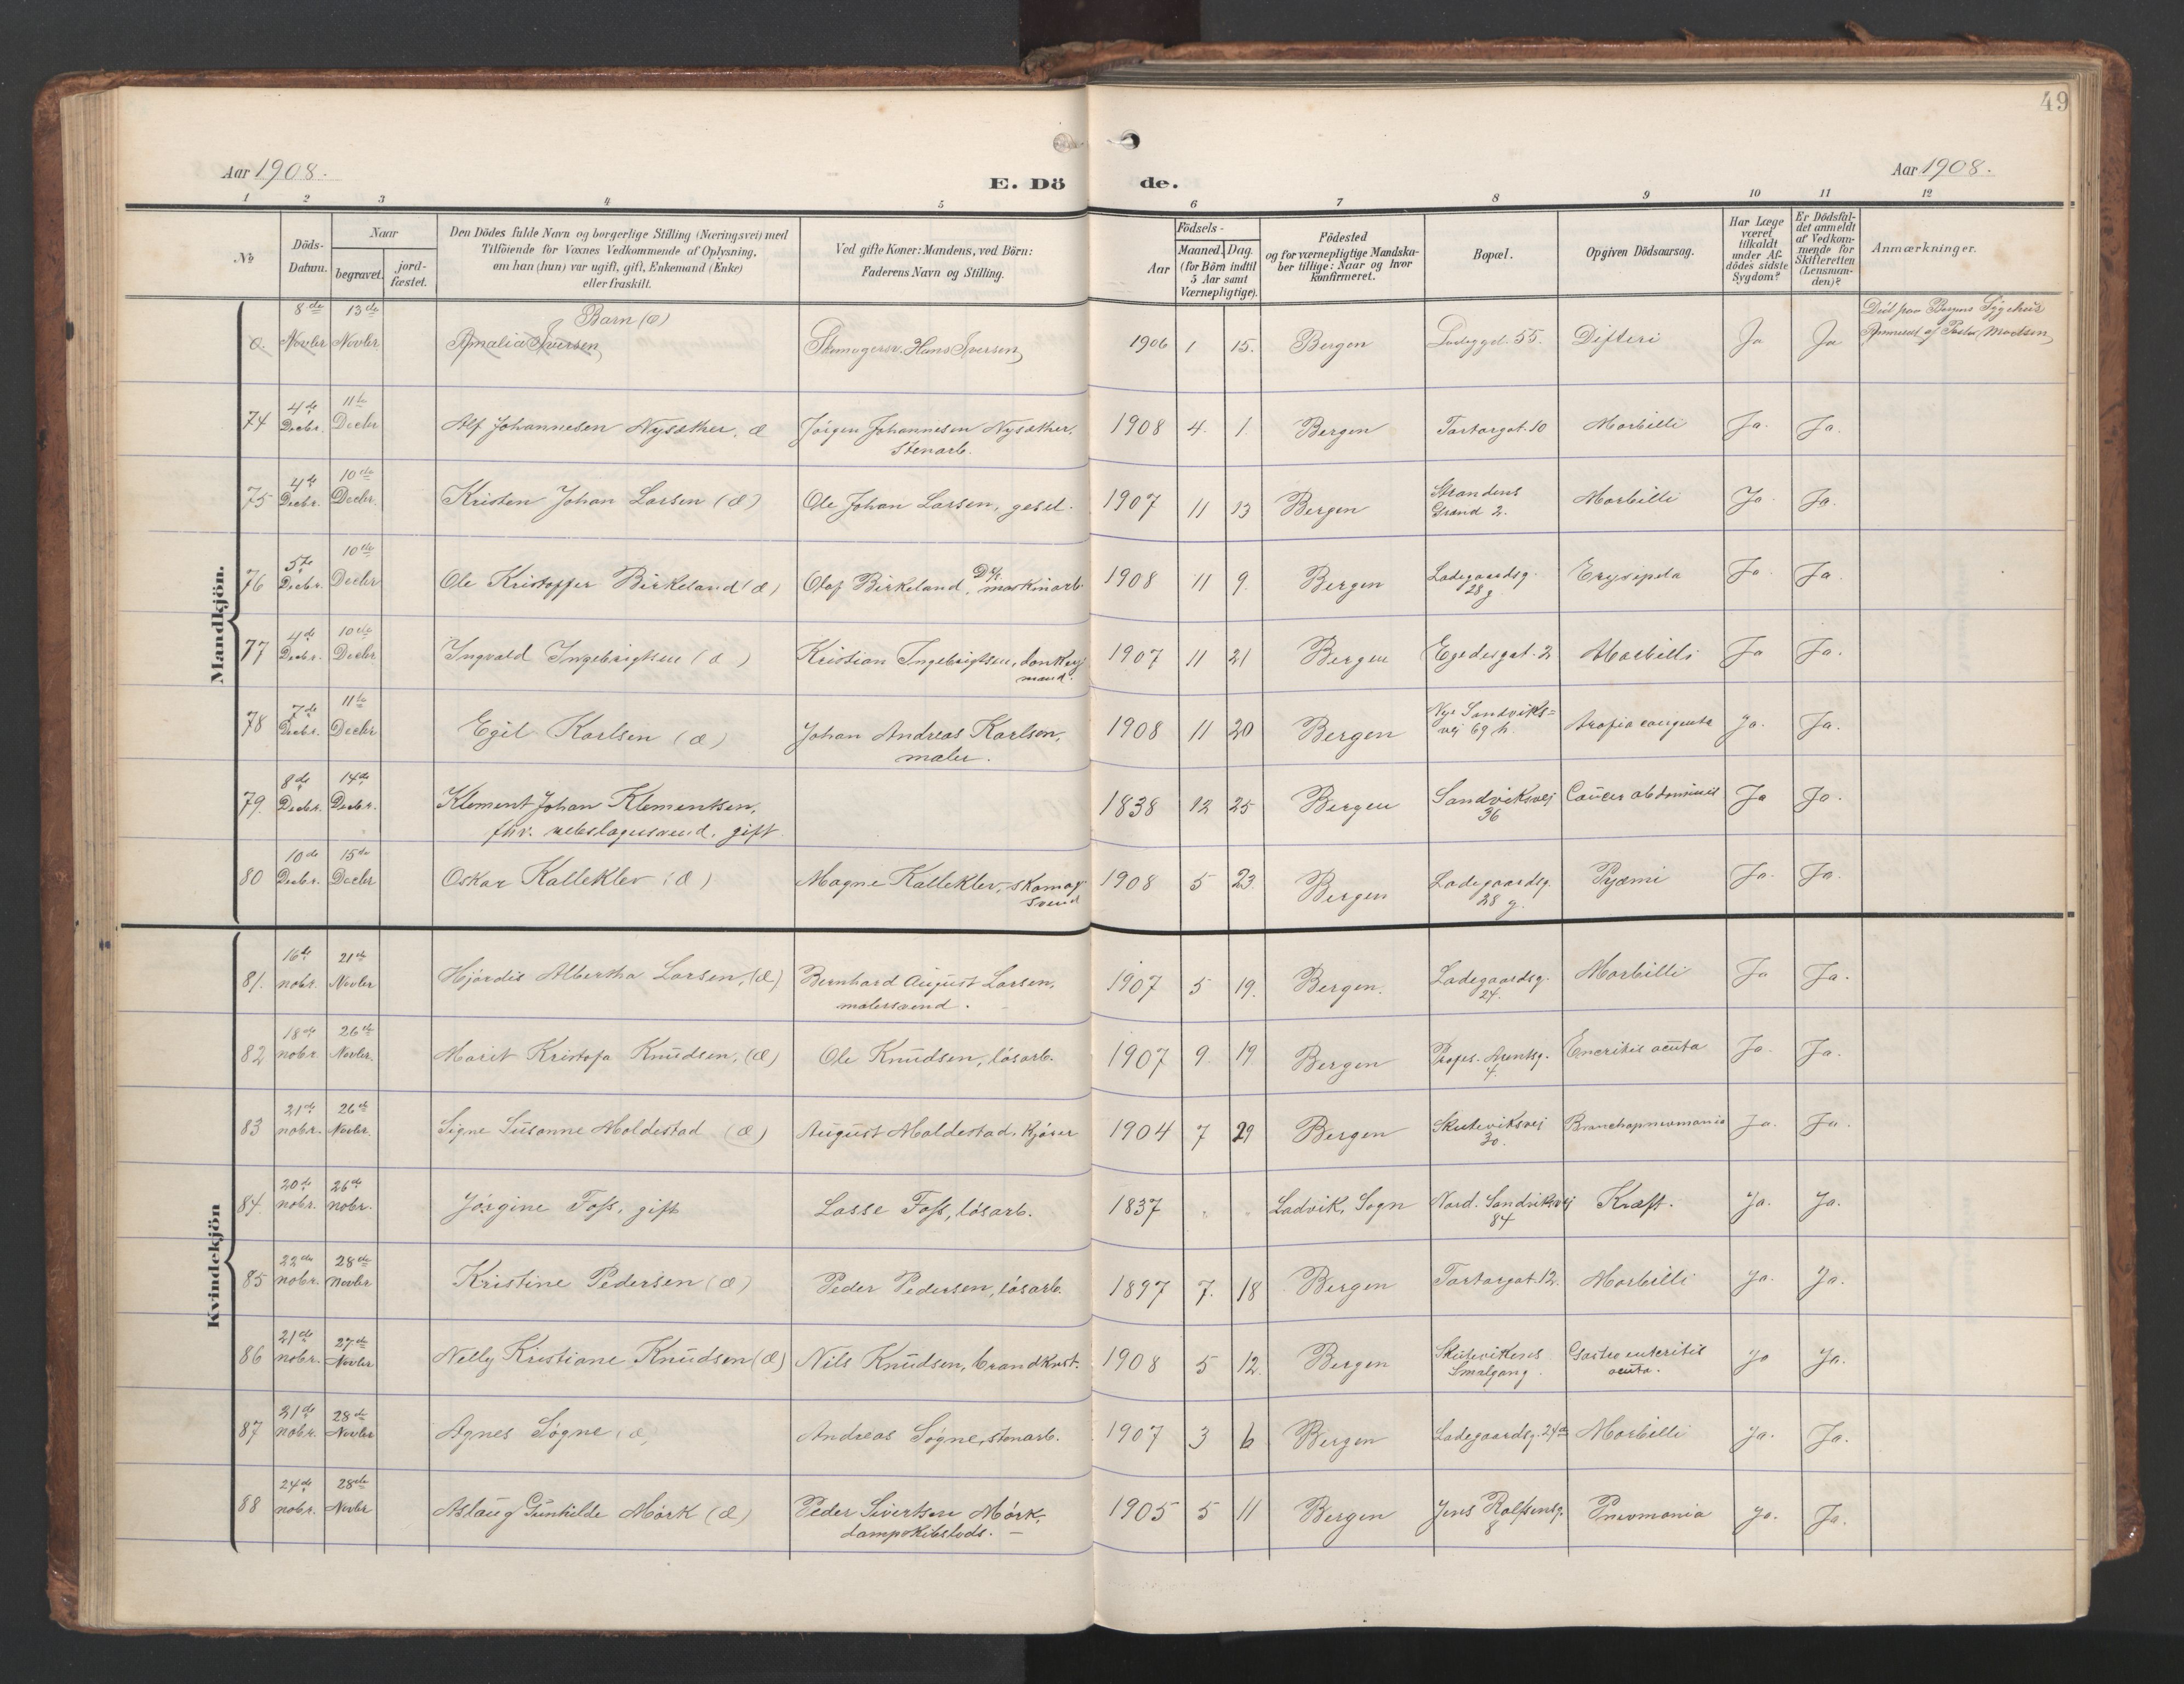 49
Aar 1908.
E. Dö
de.
Aar 1908.
1 2 3 4 5 6 7 8 9 10 11 12
No
Döds-
Datum.
Naar
begravet.
jord-
fæstet.
Den Dödes fulde Navn og borgerlige Stilling (Næringsvei) med
Tilföiende for Voxnes Vedkommende af Oplysning,
om han (hun) var ugift, gift, Enkemand (Enke)
eller fraskilt.
Ved gifte Koner: Mandens, ved Börn:
Faderens Navn og Stilling.
Födsels-
Aar
Maaned. Dag.
(for Börn indtil
5 Aar samt
Værnepligtige).
Födested
og for værnepligtige Mandska-
ber tillige: Naar og hvor
konfirmeret.
Bopæl.
Opgiven Dödsaarsag.
Har Læge
været
tilkaldt
under Af-
dödes sidste
Sygdom?
Er Dödsfal-
det anmeldt
af Vedkom-
mende for
Skifteretten
(Lensman-
den)?
Anmærkninger.
Mandkjön.
0. 8de Novbr 13de Novbr Barn (Æ)
Amalia Iversen Skomagersv. Hans Iversen 1906 1 15. Bergen Ladeggd. 55. Difteri Ja Ja Död paa Bergens Sygehus
Anmeldt af Pastor Madsen
74 4de Decbr. 11te Decbr Alf Johannesen Nysæther, Æ Jörgen Johannesen Nysæther,
Stenarb. 1908 4. 1. Bergen Tartargat. 10 Morbilli Ja. Ja.
75 4de Decbr. 10de Decbr. Kristen Johan Larsen (Æ) Ole Johan Larsen, gesel. 1907 11 13 Bergen Strandens
Grand 2. Morbilli Ja. Ja.
76 5te Decbr. 10de Decbr Ole Kristoffer Birkeland (Æ) Olaf Birkeland, maskinarb. 1908 11 9. Bergen Ladegaardsg.
28 g Erysipela Ja. Ja.
77 4de Decbr. 10de Decbr Ingvald Ingebrigtsen (Æ) Kristian Ingebrigtsen, donkey
mand. 1907 11 21 Bergen Egedesgat. 2 Morbilli Ja Ja.
78 7de Decbr. 11te Decbr Egil Karlsen (Æ) Johan Andreas Karlsen,
maler. 1908 11 20 Bergen Nye Sandviks=
vej 69 h. Atrofia congenita Ja. Ja.
79. 8de Decbr. 14de Decbr. Klement Johan Klementsen,
fhv. rebslagersvend, gift. 1838 12 25 Bergen Sandviksvej
36 Cancer abdominis Ja Ja.
80 10de Decbr. 15de Decbr Oskar Kalleklev (Æ) Magne Kalleklev, skomag
svend 1908 5 23. Bergen Ladegaardsg.
28 g. Pyæmi Ja. Ja.
Kvindekjön
81. 16de nobr. 21de Novbr Hjördis Albertha Larsen, (Æ) Bernhard August Larsen,
malersvend. 1907 5 19. Bergen. Ladegaardsg.
24. Morbilli Ja Ja.
82 18de nobr. 26de Novbr. Marit Kristofa Knudsen, (Æ) Ole Knudsen, lösarb. 1907 9. 19. Bergen Profes. Arentsg.
4. Enteritis acuta Ja. Ja.
83 21de nobr. 26de Novbr. Signe Susanne Moldestad (Æ) August Moldestad, Kjörer 1904 7 29 Bergen Skuteviksvei
30. Bronchopneumonia Ja. Ja.
84. 20de nobr. 26de nobr. Jörgine Foss, gift Lasse Foss, lösarb. 1837 Ladvik, Sogn Nord. Sandviksvej
84 Kræft. Ja. Ja.
85 22de nobr. 28de Novbr Kristine Pedersen (Æ) Peder Pedersen, lösarb. 1897 7. 18 Bergen Tartargat. 12. Morbilli Ja. Ja.
86 21de nobr. 27de Novbr Nelly Kristiane Knudsen (Æ) Nils Knudsen, brandknst. 1908 5 12. Bergen Skutevikens
Smalgang. Gastro enteritis
acuta. Ja Ja.
87 21de nobr. 28de Novbr Agnes Sögne (Æ) Andreas Sögne, stenarb. 1907 3 6 Bergen Ladegaardsg. 24 a Morbilli Ja. Ja.
88 24de nobr. 28de Novbr Aslaug Gunhilde Mörk (Æ) Peder Sivertsen Mörk,
dampskibslods. 1905 5 11 Bergen Jens Rolfsensg.
8 Pneumonia Ja. Ja.